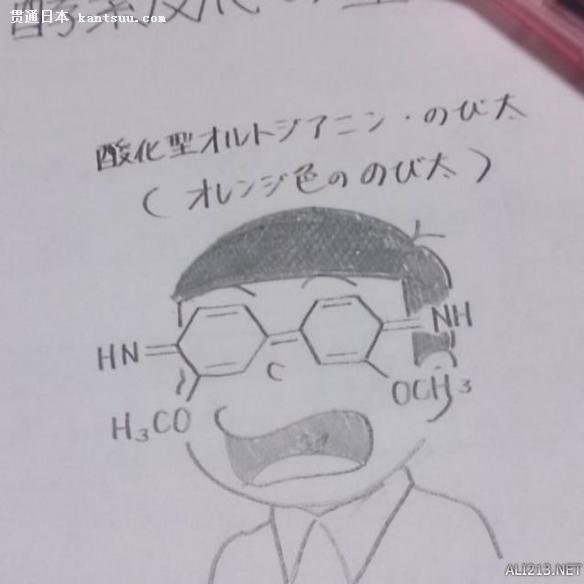 贯通日本 kantsuu.com
酵素反応
酸化型オルトジアニシン・のび太
(オレンジ色ののび太)
HN
NH
C
H₃CO
OCH₃
ALI213.NET